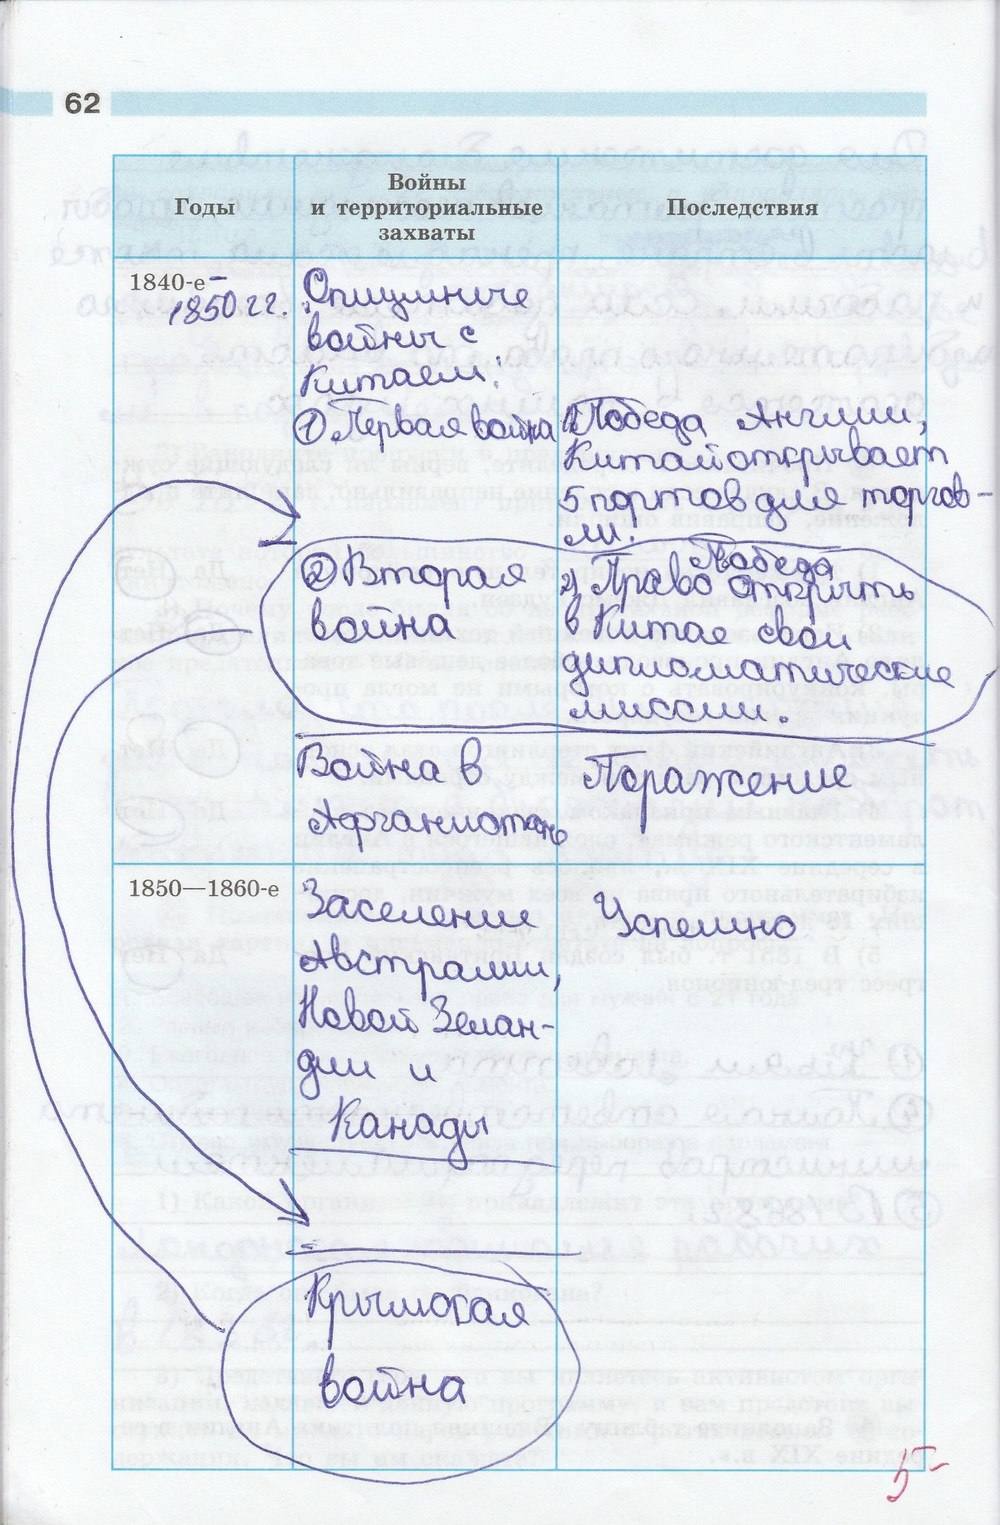 62
Годы
Войны
и территориальные
захваты
Последствия
1840-е –
1850 гг.
"Опиумные
войны с
Китаем":
① Первая война
1) Победа Англии,
Китай открывает
5 портов для торгов-
ли.
② Вторая
война
Победа
2) Право открыть
в Китае свои
дипломатические
миссии.
Война в
Афганистане
Поражение
1850—1860-е
Заселение
Австралии,
Новой Зелан-
дии и
Канады
Успешно
Крымская
война
5-